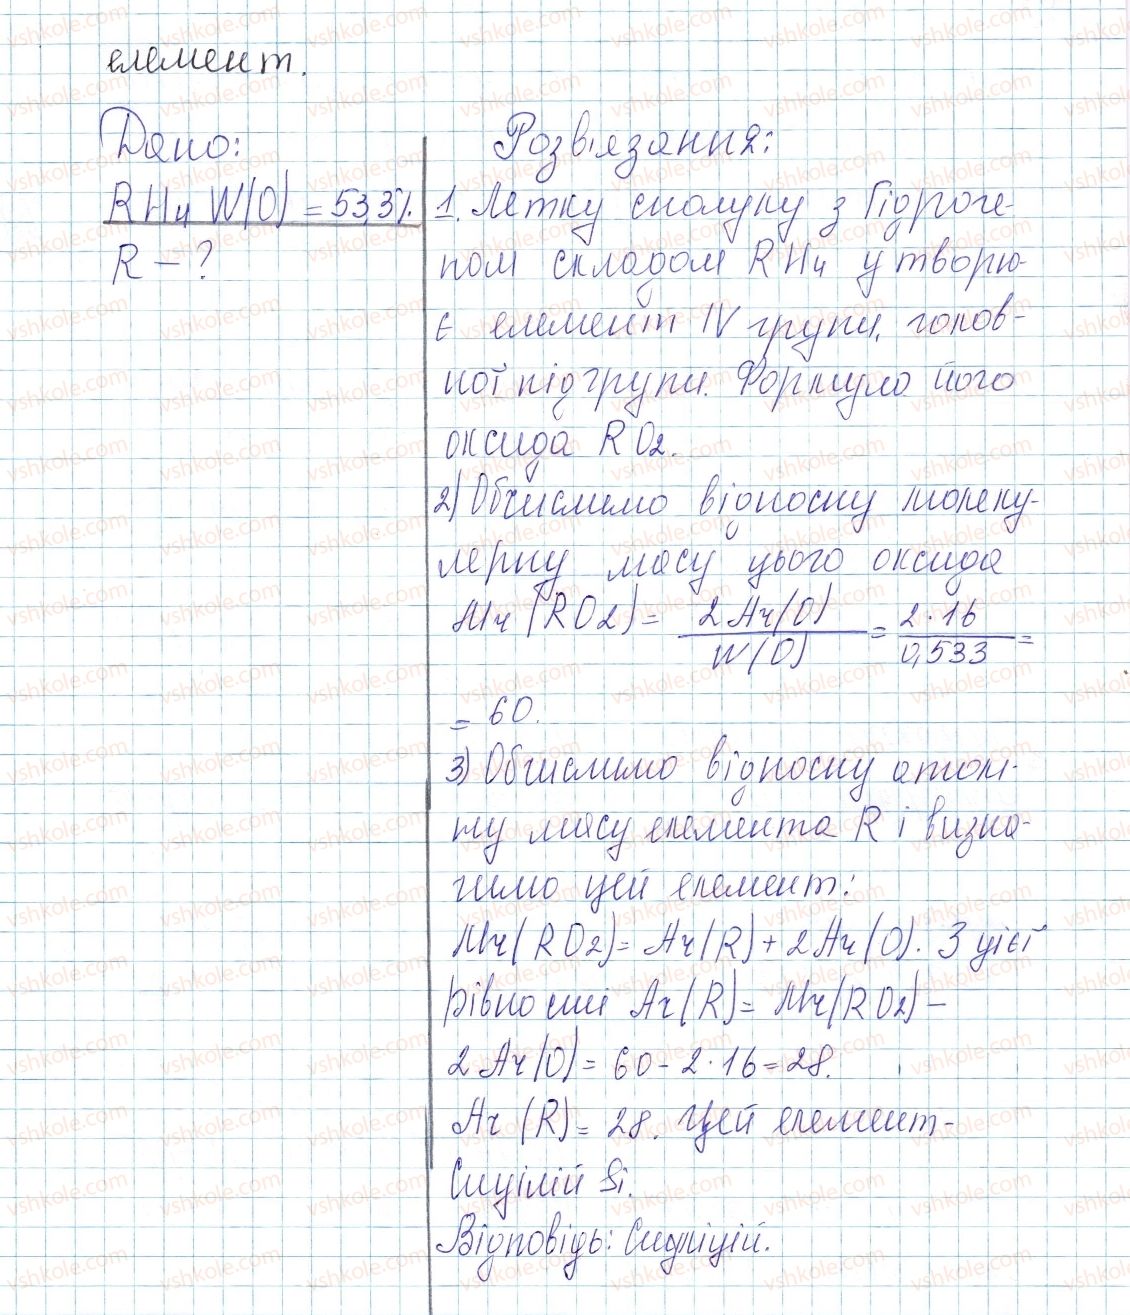 елемент.
Дано:
RH4 W(O) = 53,3%.
R – ?
Розв'язання:
1. Летку сполуку з Гідроге-
ном складом RH4 утворю-
є елемент IV групи, голов-
ної підгрупи. Формула його
оксида RO2.
2) Обчислимо відносну молеку-
лярну масу цього оксида
Mr(RO2) = 2Ar(O) / W(O) = 2·16 / 0,533 =
= 60.
3) Обчислимо відносну атом-
ну масу елемента R і визна-
чимо цей елемент:
Mr(RO2) = Ar(R) + 2Ar(O). З цієї
рівності Ar(R) = Mr(RO2) –
2Ar(O) = 60 - 2·16 = 28.
Ar(R) = 28. Цей елемент -
Сицілій Si.
Відповідь: Силіцій.